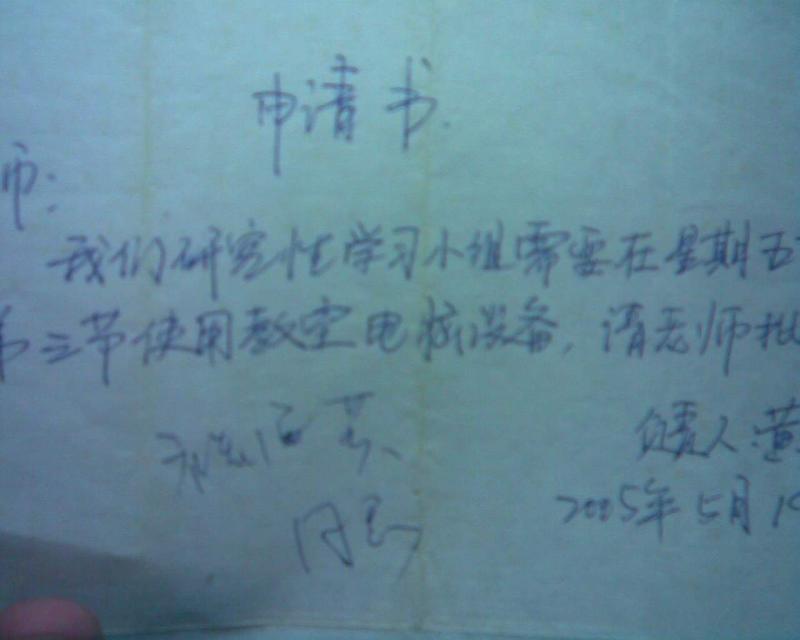 申请书.
师:
我们研究性学习小组需要在星期五
第三节使用教室电脑设备,请老师批
负责人:黄
2005年5月1
同意